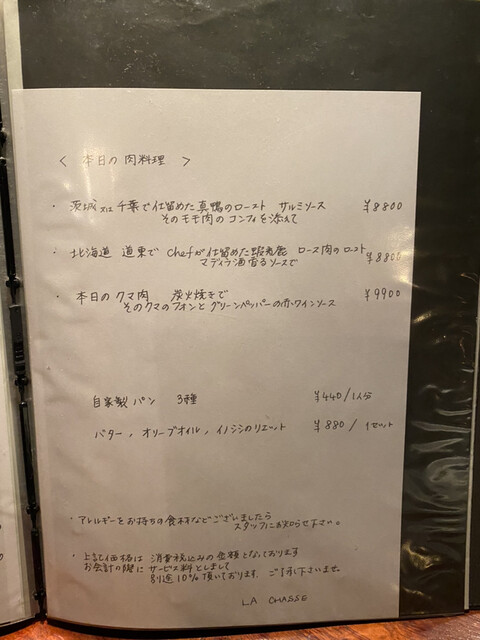 < 本日の肉料理 >
・茨城又は千葉で仕留めた真鴨のロースト サルミソース ¥8800
そのモモ肉のコンフィを添えて
・北海道 道東で Chefが仕留めた蝦夷鹿 ロース肉のロースト
マデラ酒香るソースで ¥8800
・本日のクマ肉 炭火焼きで ¥9900
そのクマのフォンとグリーンペッパーの赤ワインソース
自家製パン 3種 ¥440/1人分
バター, オリーブオイル, イノシシのリエット ¥880/1セット
・アレルギーをお持ちの食材などございましたら
スタッフにお知らせ下さい。
・上記価格は 消費税込みの金額となっております
お会計の際に サービス料としまして
別途10%頂いております. ご了承下さいませ.
LA CHASSE